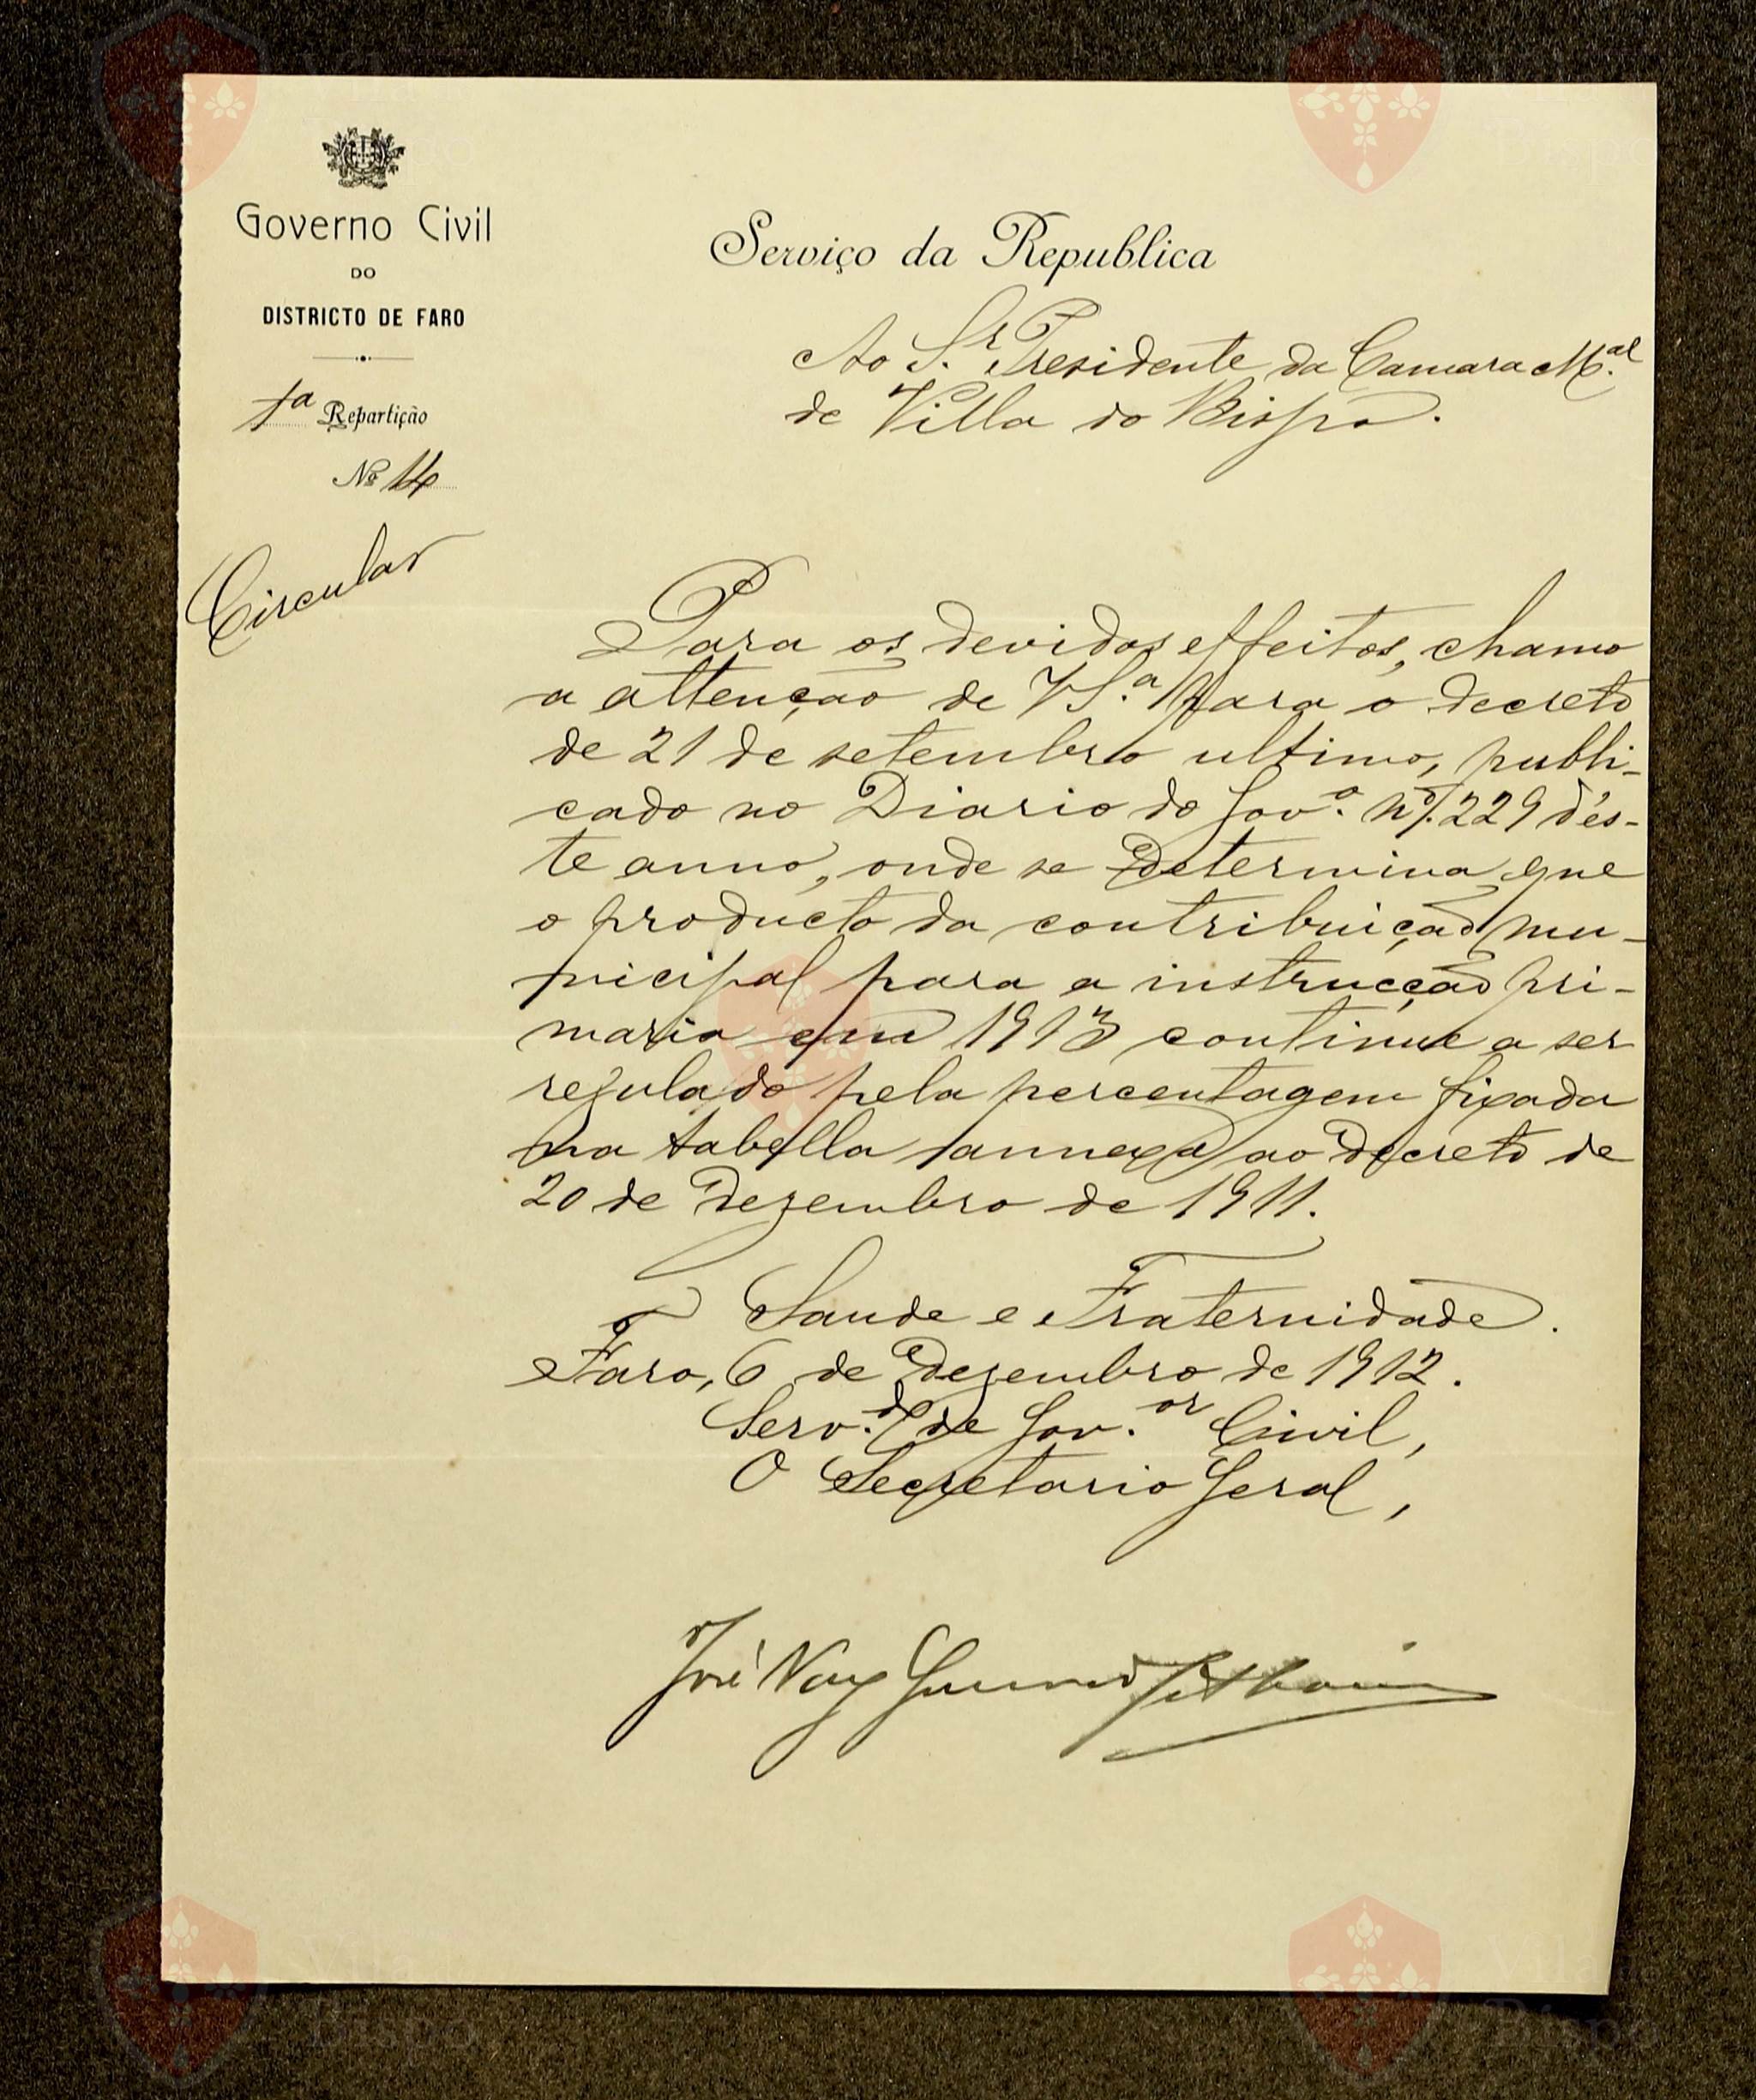 Governo Civil
DO
DISTRICTO DE FARO
1ª Repartição
Nº 14
Circular
Serviço da Republica
Ao Sr. Presidente da Camara M.al
de Villa do Bispo.
Para os devidos effeitos, chamo
a attenção de V S.ª para o decreto
de 21 de setembro ultimo, publi-
cado no Diario do Gov.º nº 229 d'és-
te anno, onde se determina que
o producto da contribuição mu-
nicipal para a instrucção pri-
maria em 1913 continue a ser
regulado pela percentagem fixada
na tabella annexa ao decreto de
20 de Dezembro de 1911.
Saude e Fraternidade.
Faro, 6 de Dezembro de 1912.
Serv.do de Gov.or Civil,
O Secretario Geral,
José Vaz Guerreiro
Vila do
Bispo